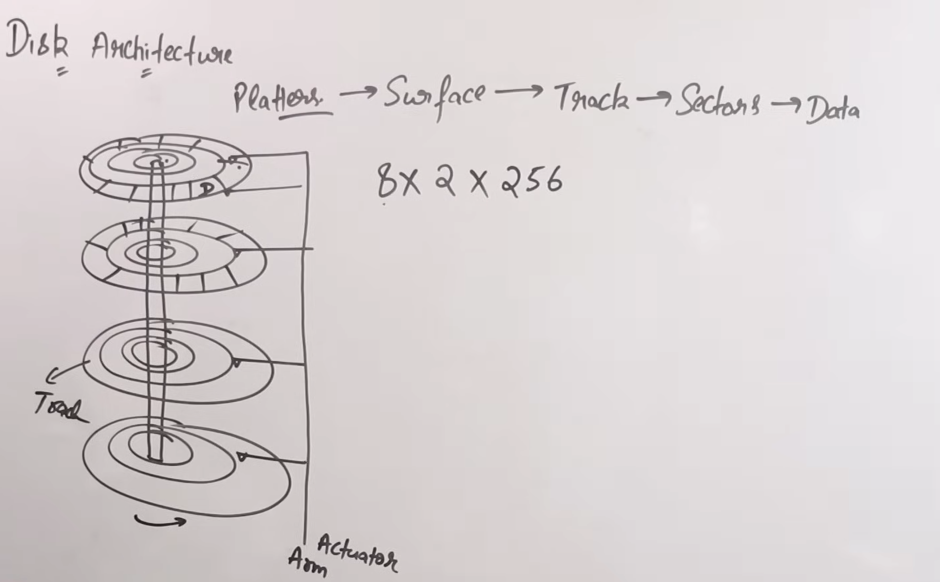 Disk Architecture
Platters → Surface → Track → Sectors → Data
8 X 2 X 256
Track
Actuator
Arm